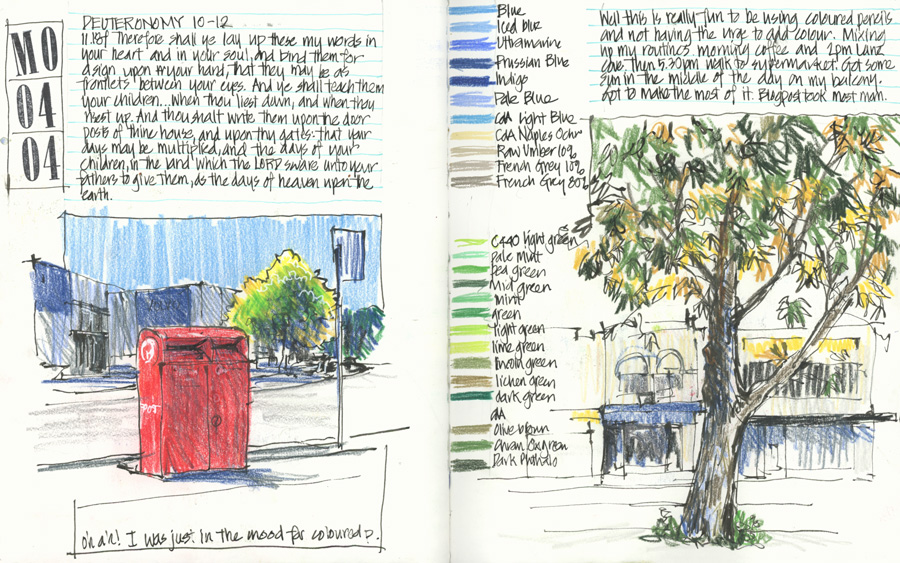 MO
04
04
DEUTERONOMY 10-12
11.18f Therefore shall ye lay up these my words in
your heart and in your soul, and bind them for
a sign upon your hand, that they may be as
frontlets between your eyes. And ye shall teach them
your children... when thou liest down, and when thou
risest up. And thou shalt write them upon the door
posts of thine house, and upon thy gates: that your
days may be multiplied, and the days of your
children, in the land which the LORD sware unto your
fathers to give them, as the days of heaven upon the
earth.
oh ah! I was just in the mood for coloured p.
Blue
Iced blue
Ultramarine
Prussian Blue
Indigo
Pale Blue
CdA Light Blue
CdA Naples Ochre
Raw Umber 10%
French Grey 10%
French Grey 80%
light green
pale mint
Pea green
Mid green
mint
green
light green
lime green
lincoln green
lichen green
dark green
CdA
Olive brown
Dark Phthalo
Well this is really fun to be using coloured pencils
and not having the urge to add colour. Mixing
up my routines. morning coffee and 2pm Lane
Cove then 5.30pm walk to supermarket. Got some
sun in the middle of the day on my balcony.
Got to make the most of it. Blogpost took most